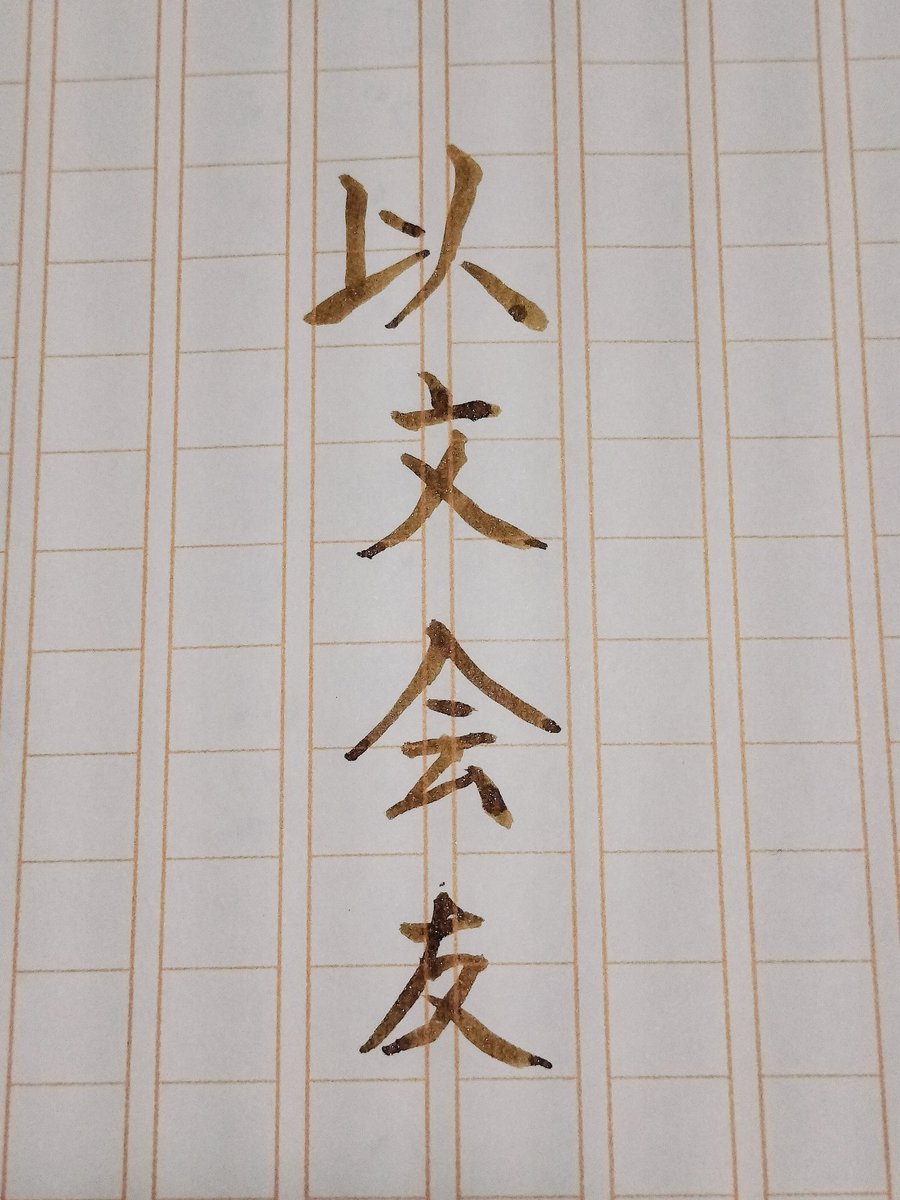 以文会友